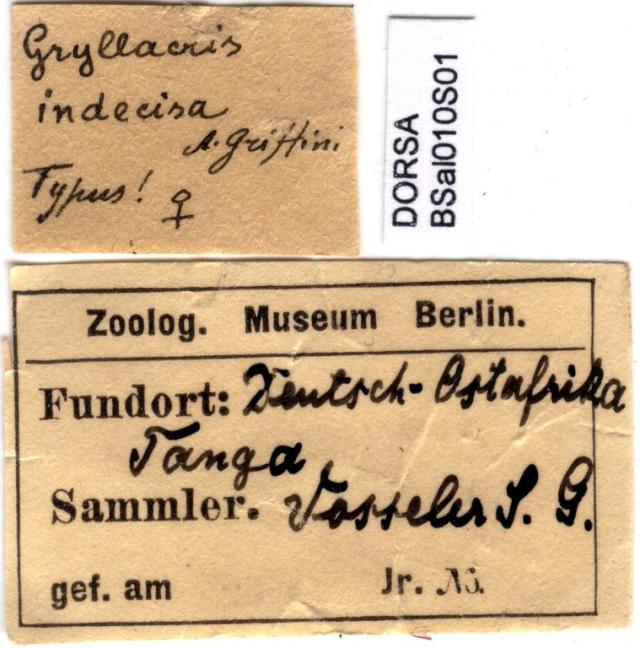 Gryllacris
indecisa
A. Griffini
Typus! ♀
DORSA
BSal010S01
Zoolog. Museum Berlin.
Fundort: Deutsch-Ostafrika
Tanga
Sammler. Vosseler S. G.
gef. am Jr. No.